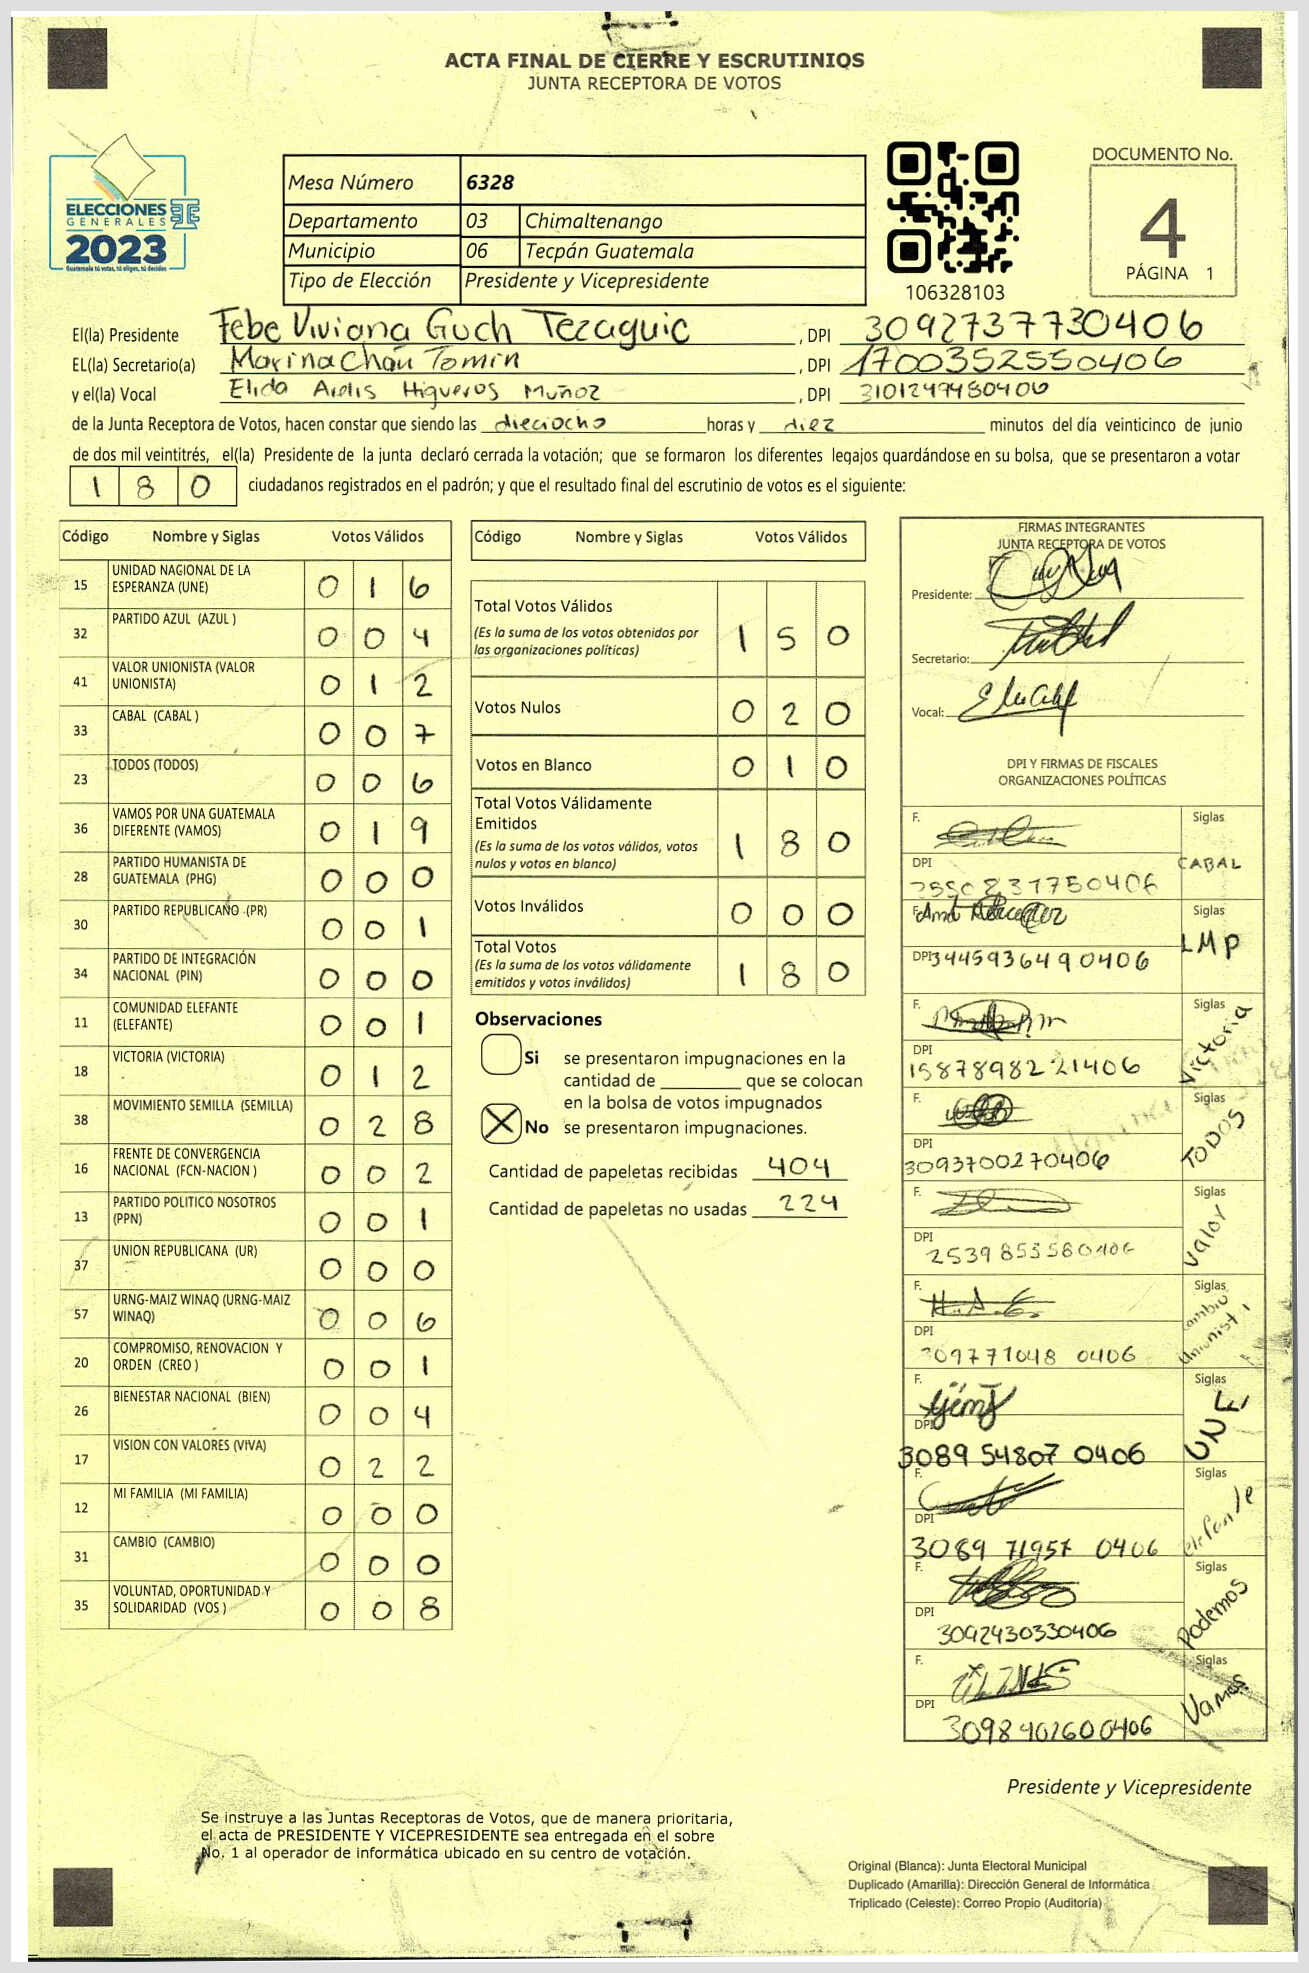 ACTA FINAL DE CIERRE Y ESCRUTINIOS
JUNTA RECEPTORA DE VOTOS
ELECCIONES
GENERALES
2023
Guatemala tú votas, tú eliges, tú decides
Mesa Número 6328
Departamento 03 Chimaltenango
Municipio 06 Tecpán Guatemala
Tipo de Elección Presidente y Vicepresidente
106328103
DOCUMENTO No.
4
PÁGINA 1
El(la) Presidente Febe Viviana Guch Tezaguic, DPI 3092737730406
EL(la) Secretario(a) Marina Chán Tomín, DPI 1700352550406
y el(la) Vocal Elida Higueros Muñoz, DPI 3101249480406
de la Junta Receptora de Votos, hacen constar que siendo las dieciocho horas y diez minutos del día veinticinco de junio
de dos mil veintitrés, el(la) Presidente de la junta declaró cerrada la votación; que se formaron los diferentes legajos guardándose en su bolsa, que se presentaron a votar
1 8 0 ciudadanos registrados en el padrón; y que el resultado final del escrutinio de votos es el siguiente:
Código Nombre y Siglas Votos Válidos
15 UNIDAD NACIONAL DE LA ESPERANZA (UNE) 0 1 6
32 PARTIDO AZUL (AZUL ) 0 0 4
41 VALOR UNIONISTA (VALOR UNIONISTA) 0 1 2
33 CABAL (CABAL ) 0 0 7
23 TODOS (TODOS) 0 0 6
36 VAMOS POR UNA GUATEMALA DIFERENTE (VAMOS) 0 1 9
28 PARTIDO HUMANISTA DE GUATEMALA (PHG) 0 0 0
30 PARTIDO REPUBLICANO (PR) 0 0 1
34 PARTIDO DE INTEGRACIÓN NACIONAL (PIN) 0 0 0
11 COMUNIDAD ELEFANTE (ELEFANTE) 0 0 1
18 VICTORIA (VICTORIA) 0 1 2
38 MOVIMIENTO SEMILLA (SEMILLA) 0 2 8
16 FRENTE DE CONVERGENCIA NACIONAL (FCN-NACION ) 0 0 2
13 PARTIDO POLITICO NOSOTROS (PPN) 0 0 1
37 UNION REPUBLICANA (UR) 0 0 0
57 URNG-MAIZ WINAQ (URNG-MAIZ WINAQ) 0 0 6
20 COMPROMISO, RENOVACION Y ORDEN (CREO ) 0 0 1
26 BIENESTAR NACIONAL (BIEN) 0 0 4
17 VISION CON VALORES (VIVA) 0 2 2
12 MI FAMILIA (MI FAMILIA) 0 0 0
31 CAMBIO (CAMBIO) 0 0 0
35 VOLUNTAD, OPORTUNIDAD Y SOLIDARIDAD (VOS ) 0 0 8
Código Nombre y Siglas Votos Válidos
Total Votos Válidos 1 5 0
(Es la suma de los votos obtenidos por
las organizaciones políticas)
Votos Nulos 0 2 0
Votos en Blanco 0 1 0
Total Votos Válidamente
Emitidos 1 8 0
(Es la suma de los votos válidos, votos
nulos y votos en blanco)
Votos Inválidos 0 0 0
Total Votos 1 8 0
(Es la suma de los votos válidamente
emitidos y votos inválidos)
Observaciones
Si se presentaron impugnaciones en la
cantidad de ________ que se colocan
en la bolsa de votos impugnados
X No se presentaron impugnaciones.
Cantidad de papeletas recibidas 404
Cantidad de papeletas no usadas 224
FIRMAS INTEGRANTES
JUNTA RECEPTORA DE VOTOS
Presidente:
Secretario:
Vocal:
DPI Y FIRMAS DE FISCALES
ORGANIZACIONES POLÍTICAS
F. Siglas
DPI CABAL
F. Siglas
DPI 3445936490406 LMP
F. Siglas
DPI Victoria
1587898221406
F. Siglas
DPI TODOS
3093700270406
F. Siglas
DPI Valor
2539853580406
F. H.A.E. Siglas
DPI Cambio
309771048 0406
F. Siglas
DPI UNE
3089 54807 0406
F. Siglas
DPI elefante
3089 71957 0406
F. Siglas
DPI Podemos
3092430330406
F. Siglas
DPI Vamos
3098402600406
Presidente y Vicepresidente
Se instruye a las Juntas Receptoras de Votos, que de manera prioritaria,
el acta de PRESIDENTE Y VICEPRESIDENTE sea entregada en el sobre
No. 1 al operador de informática ubicado en su centro de votación.
Original (Blanca): Junta Electoral Municipal
Duplicado (Amarilla): Dirección General de Informática
Triplicado (Celeste): Correo Propio (Auditoría)